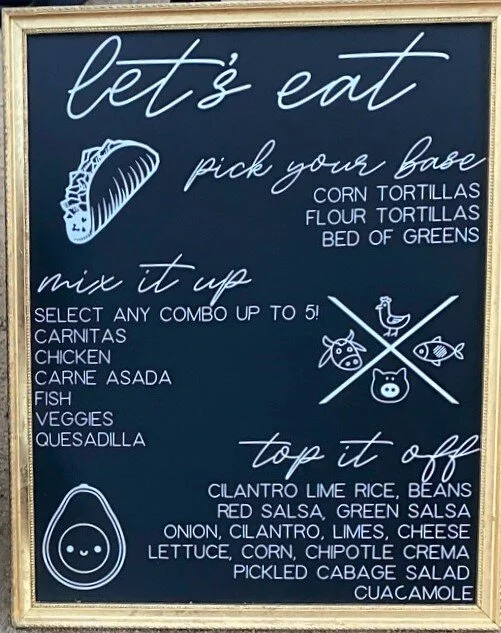 let's eat
pick your base
CORN TORTILLAS
FLOUR TORTILLAS
BED OF GREENS
mix it up
SELECT ANY COMBO UP TO 5!
CARNITAS
CHICKEN
CARNE ASADA
FISH
VEGGIES
QUESADILLA
top it off
CILANTRO LIME RICE, BEANS
RED SALSA, GREEN SALSA
ONION, CILANTRO, LIMES, CHEESE
LETTUCE, CORN, CHIPOTLE CREMA
PICKLED CABAGE SALAD
CUACAMOLE